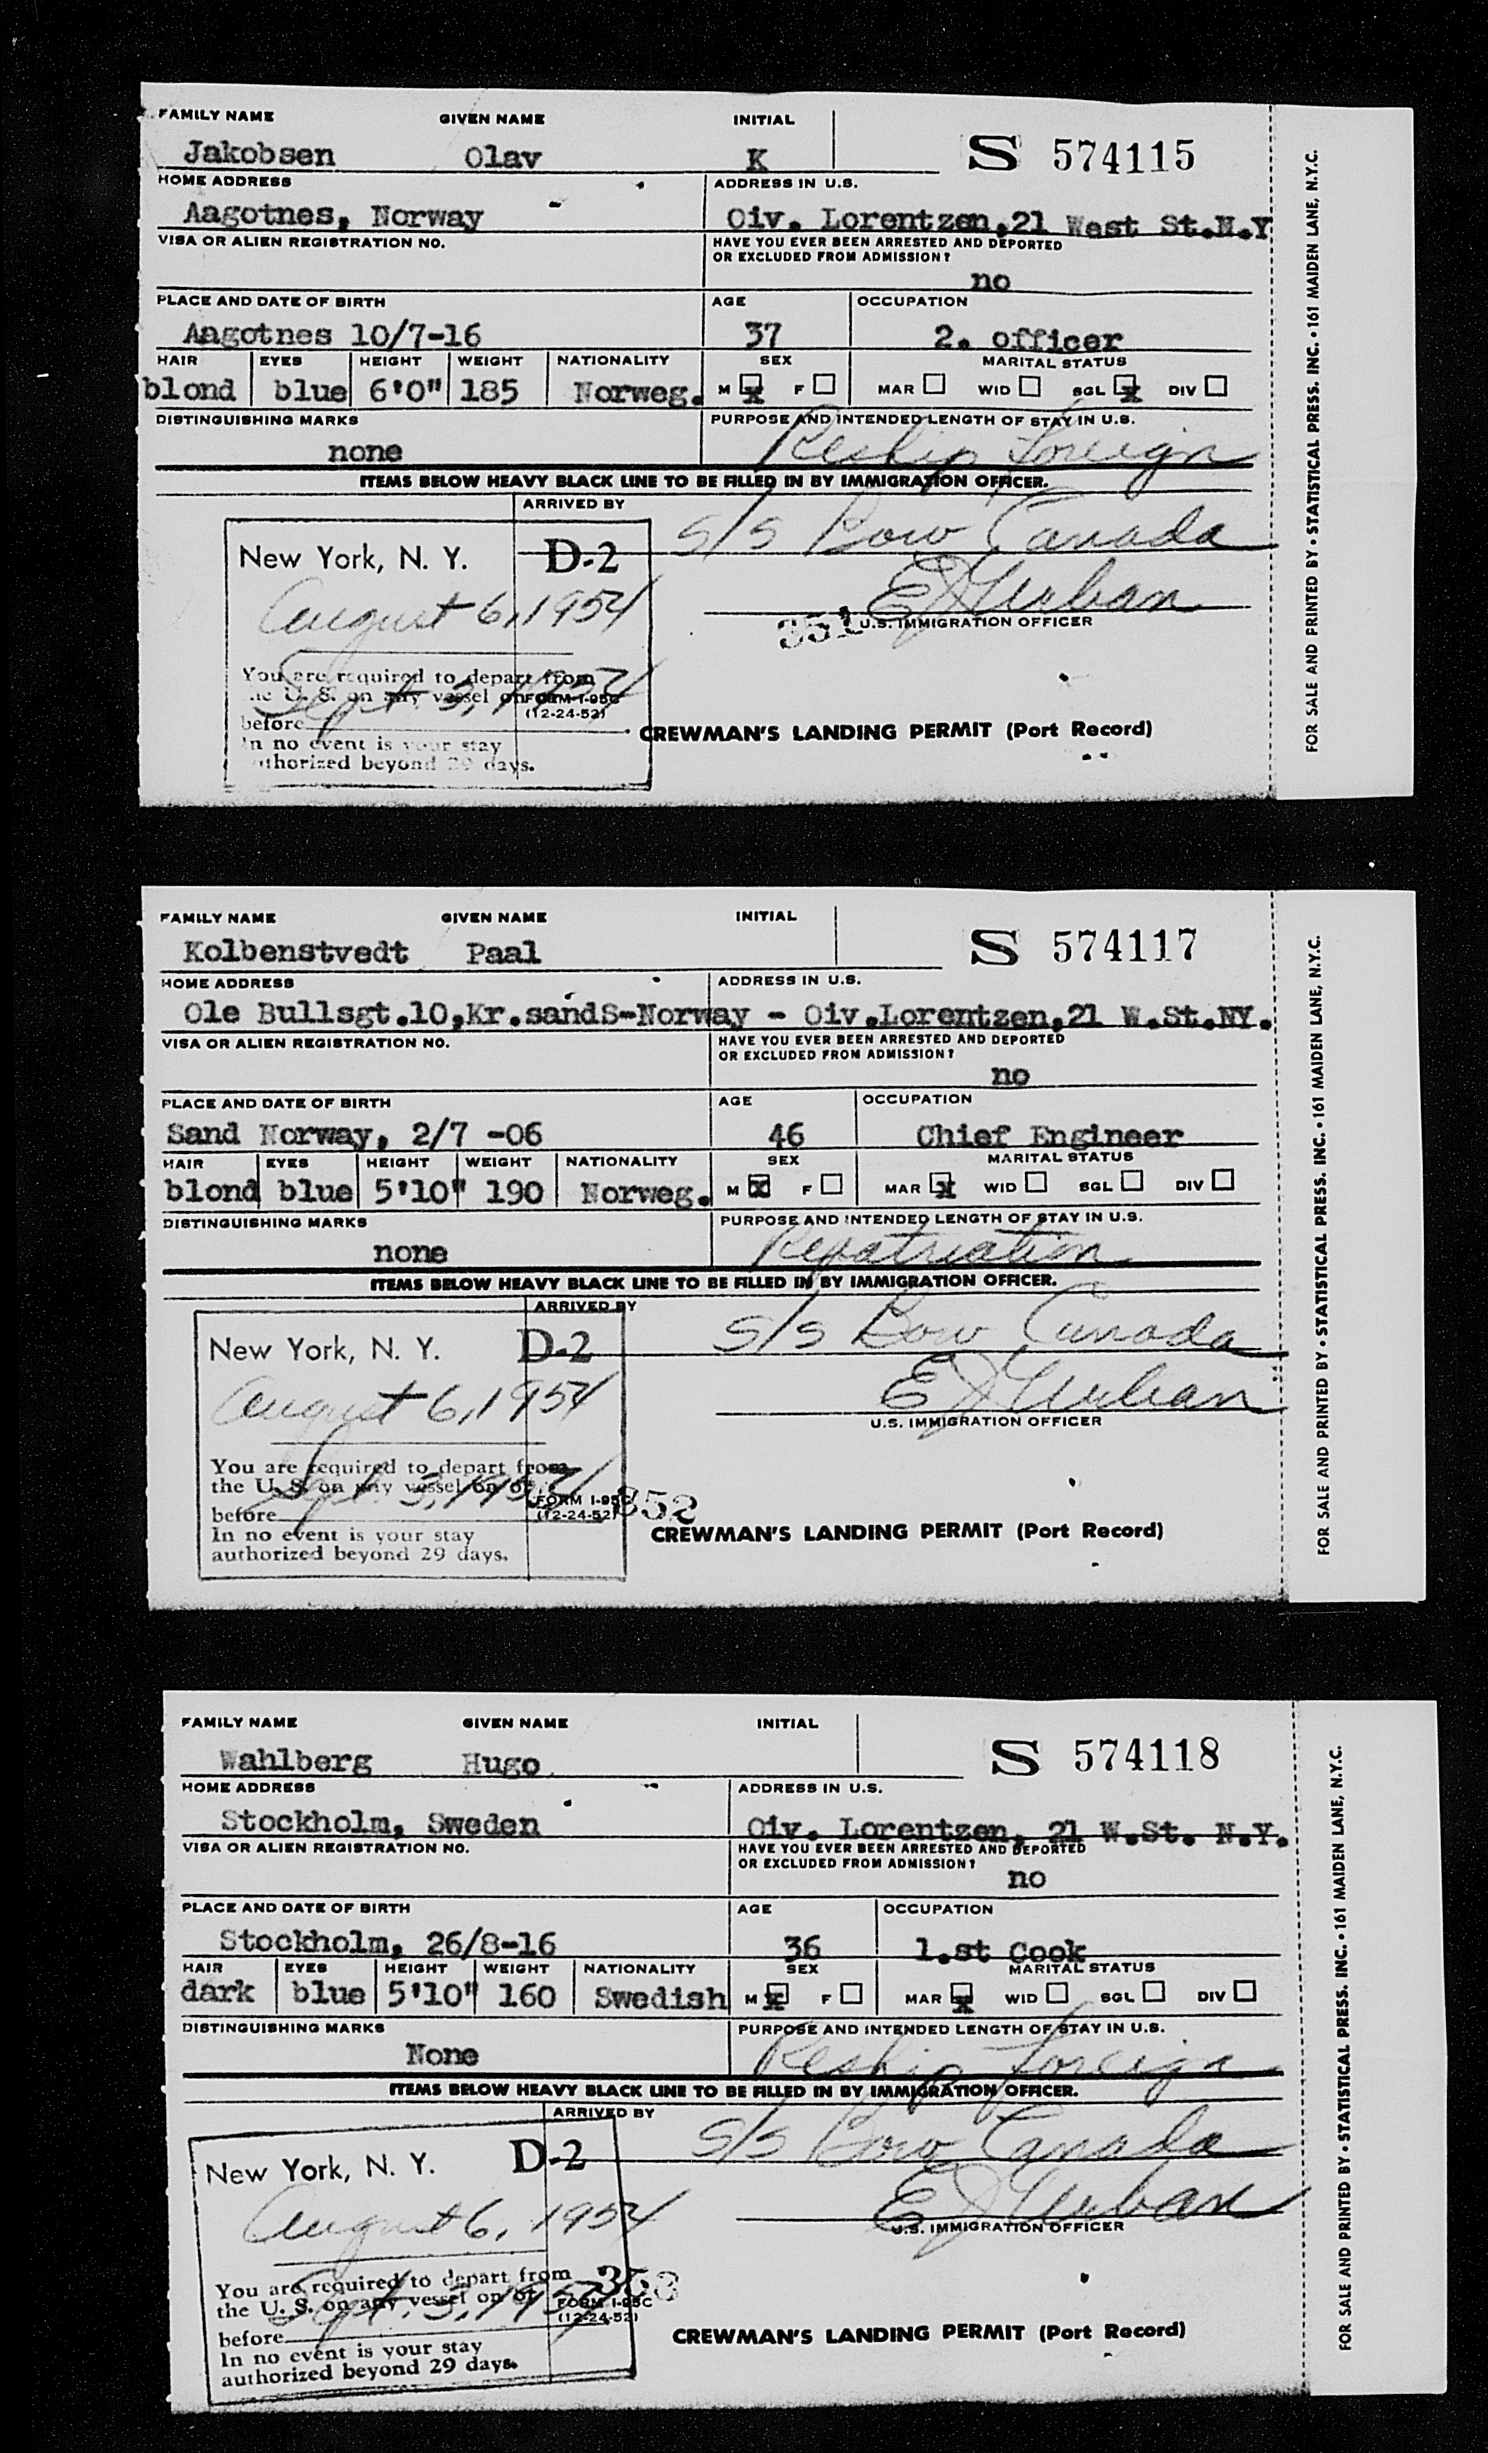 FAMILY NAME GIVEN NAME INITIAL
Jakobsen Olav K S 574115
HOME ADDRESS ADDRESS IN U.S.
Aagotnes, Norway Oiv. Lorentzen,21 West St.N.Y
VISA OR ALIEN REGISTRATION NO. HAVE YOU EVER BEEN ARRESTED AND DEPORTED
OR EXCLUDED FROM ADMISSION?
no
PLACE AND DATE OF BIRTH AGE OCCUPATION
Aagotnes 10/7-16 37 2. officer
HAIR EYES HEIGHT WEIGHT NATIONALITY SEX MARITAL STATUS
blond blue 6'0" 185 Norweg. M x F MAR WID SGL x DIV
DISTINGUISHING MARKS PURPOSE AND INTENDED LENGTH OF STAY IN U.S.
none Reship Foreign
ITEMS BELOW HEAVY BLACK LINE TO BE FILLED IN BY IMMIGRATION OFFICER.
ARRIVED BY
S/S Bow Canada
New York, N. Y. D-2
August 6, 1954
351 U.S. IMMIGRATION OFFICER
You are required to depart from
the U. S. on any vessel on or FORM I-95C
Sept. 3, 1954
before (12-24-52)
CREWMAN'S LANDING PERMIT (Port Record)
In no event is your stay
authorized beyond 29 days.
FOR SALE AND PRINTED BY • STATISTICAL PRESS. INC. • 161 MAIDEN LANE, N.Y.C.
FAMILY NAME GIVEN NAME INITIAL
Kolbenstvedt Paal S 574117
HOME ADDRESS ADDRESS IN U.S.
Ole Bullsgt.10,Kr.sandS-Norway - Oiv.Lorentzen,21 W.St.NY.
VISA OR ALIEN REGISTRATION NO. HAVE YOU EVER BEEN ARRESTED AND DEPORTED
OR EXCLUDED FROM ADMISSION?
no
PLACE AND DATE OF BIRTH AGE OCCUPATION
Sand Norway, 2/7 -06 46 Chief Engineer
HAIR EYES HEIGHT WEIGHT NATIONALITY SEX MARITAL STATUS
blond blue 5'10" 190 Norweg. M x F MAR x WID SGL DIV
DISTINGUISHING MARKS PURPOSE AND INTENDED LENGTH OF STAY IN U.S.
none Repatriation
ITEMS BELOW HEAVY BLACK LINE TO BE FILLED IN BY IMMIGRATION OFFICER.
ARRIVED BY
S/S Bow Canada
New York, N. Y. D-2
August 6, 1954
U.S. IMMIGRATION OFFICER
You are required to depart from
the U. S. on any vessel on or
Sept. 3, 1954
FORM I-95C 352
before (12-24-52)
CREWMAN'S LANDING PERMIT (Port Record)
In no event is your stay
authorized beyond 29 days.
FOR SALE AND PRINTED BY • STATISTICAL PRESS. INC. • 161 MAIDEN LANE, N.Y.C.
FAMILY NAME GIVEN NAME INITIAL
Wahlberg Hugo S 574118
HOME ADDRESS ADDRESS IN U.S.
Stockholm, Sweden Oiv. Lorentzen, 21 W.St. N.Y.
VISA OR ALIEN REGISTRATION NO. HAVE YOU EVER BEEN ARRESTED AND DEPORTED
OR EXCLUDED FROM ADMISSION?
no
PLACE AND DATE OF BIRTH AGE OCCUPATION
Stockholm, 26/8-16 36 1.st Cook
HAIR EYES HEIGHT WEIGHT NATIONALITY SEX MARITAL STATUS
dark blue 5'10" 160 Swedish M x F MAR x WID SGL DIV
DISTINGUISHING MARKS PURPOSE AND INTENDED LENGTH OF STAY IN U.S.
None Reship Foreign
ITEMS BELOW HEAVY BLACK LINE TO BE FILLED IN BY IMMIGRATION OFFICER.
ARRIVED BY
S/S Bow Canada
New York, N. Y. D-2
August 6, 1954
U.S. IMMIGRATION OFFICER
You are required to depart from 353
the U. S. on any vessel on or FORM I-95C
Sept. 3, 1954
before (12-24-52)
CREWMAN'S LANDING PERMIT (Port Record)
In no event is your stay
authorized beyond 29 days.
FOR SALE AND PRINTED BY • STATISTICAL PRESS. INC. • 161 MAIDEN LANE, N.Y.C.